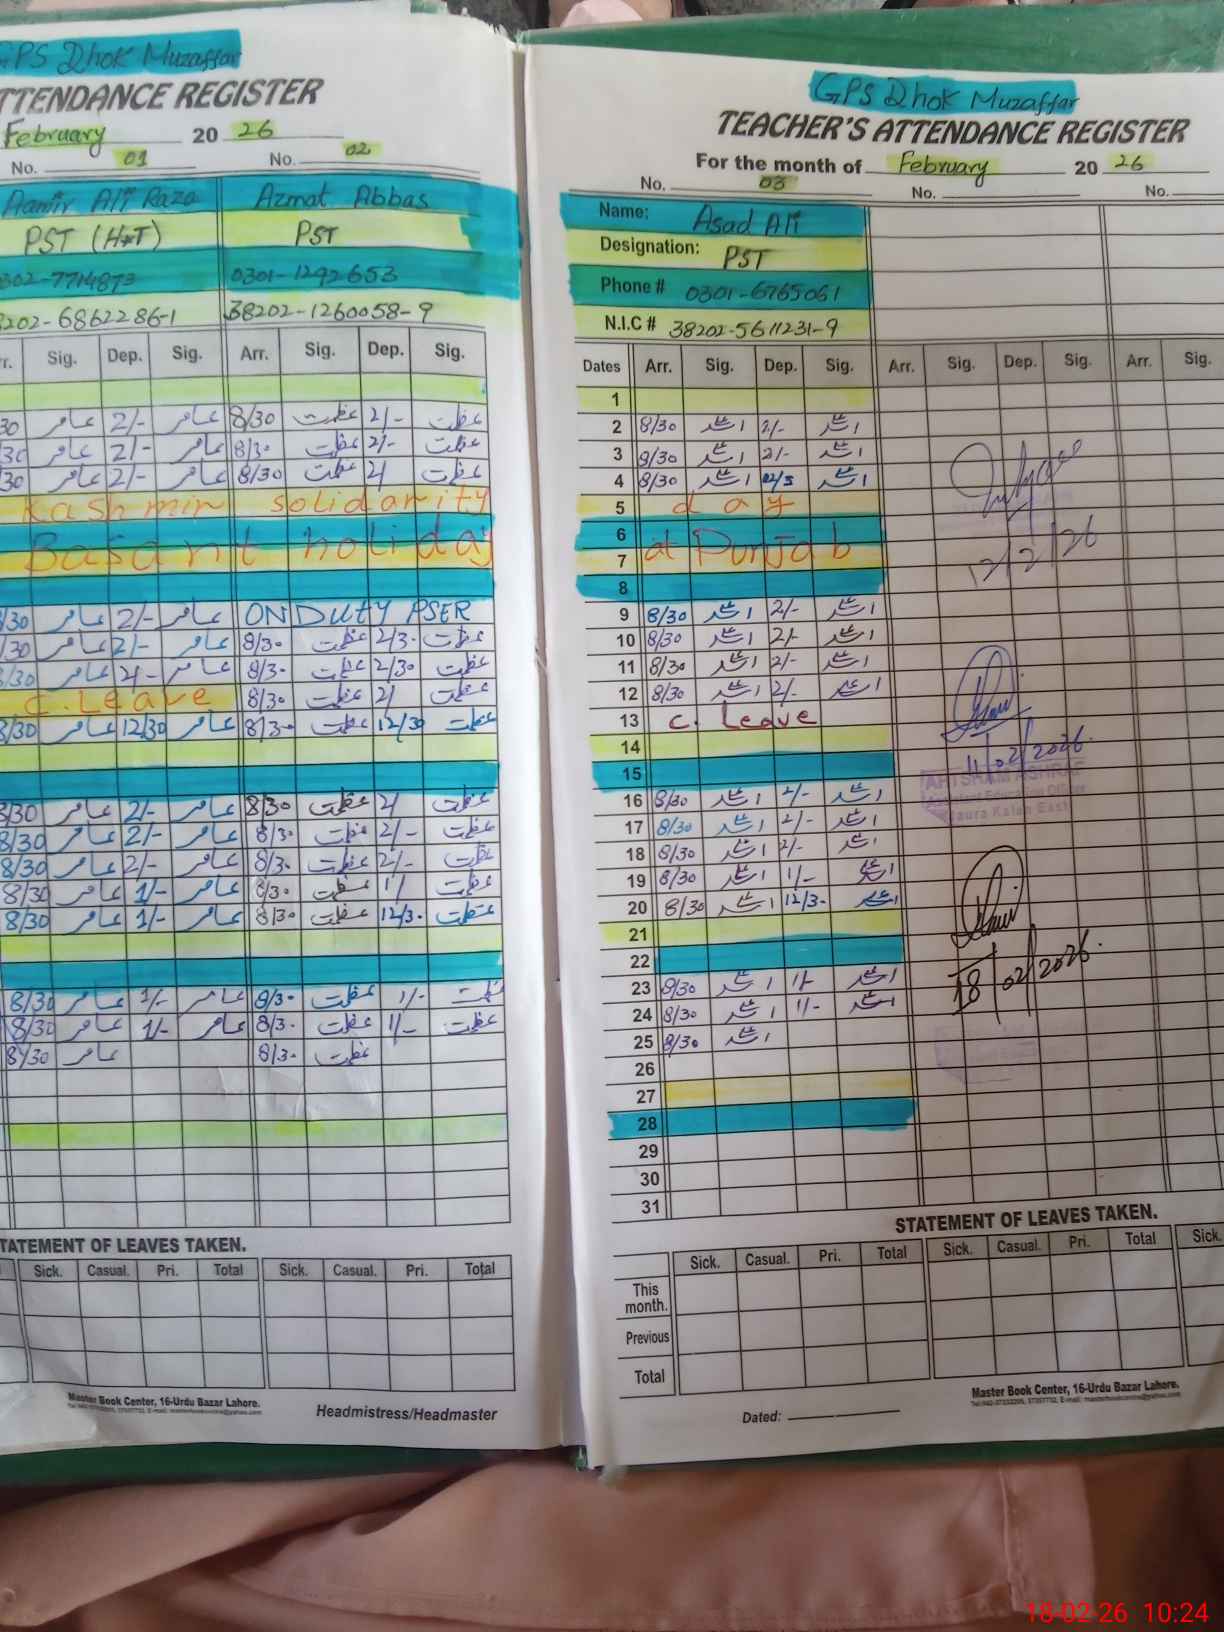 GPS Dhok Muzaffar
TTENDANCE REGISTER
February 20 26
No. 01 No. 02
Aamir Ali Raza Azmat Abbas
PST (H.T) PST
302-7714873 0301-1292653
3202-6862286-1 38202-1260058-9
r. Sig. Dep. Sig. Arr. Sig. Dep. Sig.
30 عامر 2/- عامر 8/30 عظمت 2/- عظمت
30 عامر 2/- عامر 8/30 عظمت 2/- عظمت
30 عامر 2/- عامر 8/30 عظمت 2/ عظمت
Kashmir solidarity
Basant holiday
8/30 عامر 2/- عامر ON DUTY PSER
8/30 عامر 2/- عامر 8/30 عظمت 2/30 عظمت
8/30 عامر 2/- عامر 8/30 عظمت 2/30 عظمت
C. Leave 8/30 عظمت 2/ عظمت
8/30 عامر 12/30 عامر 8/30 عظمت 12/30 عظمت
8/30 عامر 2/- عامر 8/30 عظمت 2/ عظمت
8/30 عامر 2/- عامر 8/30 عظمت 2/- عظمت
8/30 عامر 2/- عامر 8/30 عظمت 2/- عظمت
8/30 عامر 1/- عامر 8/30 عظمت 1/ عظمت
8/30 عامر 1/- عامر 8/30 عظمت 12/30 عظمت
8/30 عامر 1/- عامر 8/30 عظمت 1/- عظمت
8/30 عامر 1/- عامر 8/30 عظمت 1/- عظمت
8/30 عامر 8/30 عظمت
TATEMENT OF LEAVES TAKEN.
Sick. Casual. Pri. Total Sick. Casual. Pri. Total
Master Book Center, 16-Urdu Bazar Lahore.
Headmistress/Headmaster
GPS Dhok Muzaffar
TEACHER'S ATTENDANCE REGISTER
For the month of February 20 26
No. 03 No. No.
Name: Asad Ali
Designation: PST
Phone # 0301-6765061
N.I.C # 38202-5611231-9
Dates Arr. Sig. Dep. Sig. Arr. Sig. Dep. Sig. Arr. Sig.
1
2 8/30 اسد 2/- اسد
3 8/30 اسد 2/- اسد
4 8/30 اسد اسد
5 day
6
7 at Punjab
12/2/26
8
9 8/30 اسد 2/- اسد
10 8/30 اسد 2/- اسد
11 8/30 اسد 2/- اسد
12 8/30 اسد 2/- اسد
13 C. Leave
14
11/02/2026.
15
AHTSHAM ASHRAF
Assistant Education Officer
Jaura Kalan East
16 8/30 اسد 2/- اسد
17 8/30 اسد 2/- اسد
18 8/30 اسد 2/- اسد
19 8/30 اسد 1/- اسد
20 8/30 اسد 12/30 اسد
21
22
18/02/2026.
23 8/30 اسد 1/- اسد
24 8/30 اسد 1/- اسد
25 8/30 اسد
26
27
28
29
30
31
STATEMENT OF LEAVES TAKEN.
Sick. Casual. Pri. Total Sick. Casual. Pri. Total Sick.
This month.
Previous
Total
Master Book Center, 16-Urdu Bazar Lahore.
Dated:
18-02-26 10:24